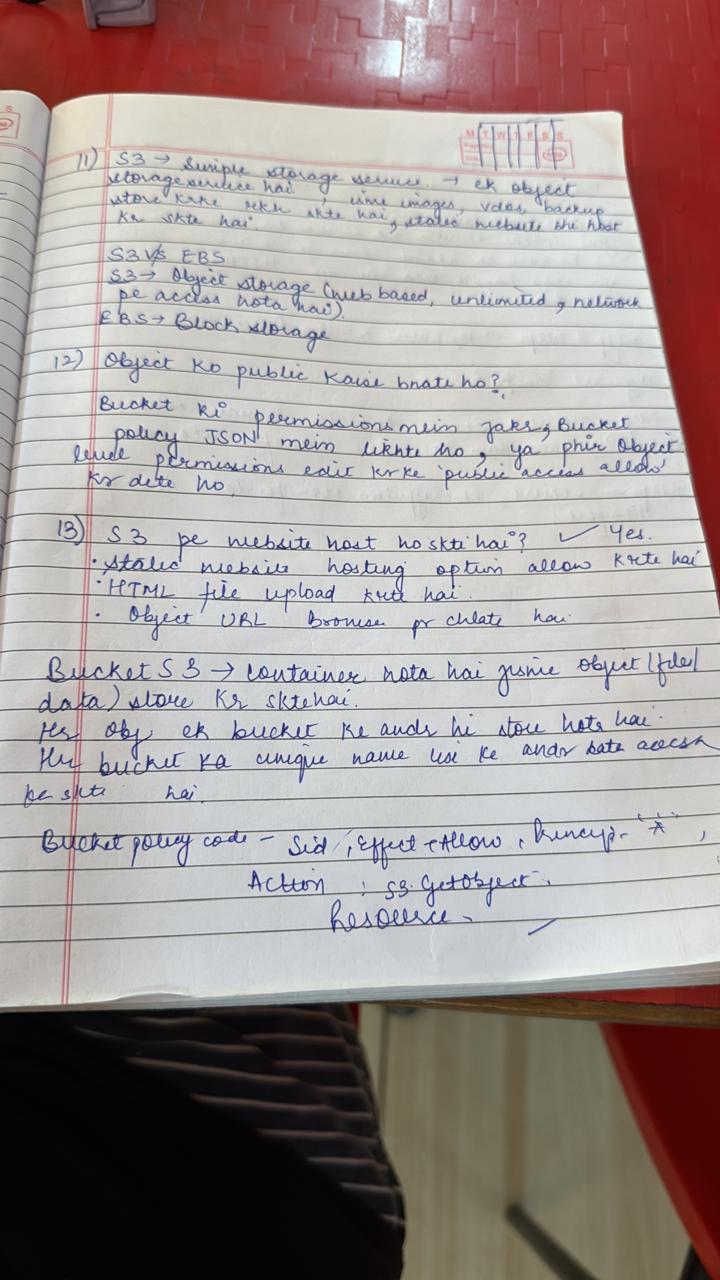 M T W T F S S
11) S3 → Simple storage service → ek object
storage service hai, isme images, vdos, backup
store krke rekh skte hai, static website bhi host
kr skte hai.
S3 V/s EBS
S3 → Object storage (web based, unlimited, network
pe access hota hai)
EBS → Block storage
12) Object ko public kaise bnate ho?
Bucket ki permissions mein jakr, Bucket
policy JSON mein likhte ho, ya phir Object
level permissions edit krke 'public access allow'
kr dete ho.
13) S3 pe website host ho skti hai? ✓ Yes.
• Static website hosting option allow krte hai
• HTML file upload krte hai.
• Object URL browse pr chlate hai.
Bucket S3 → container hota hai jisme object (file/
data) store kr skte hai.
Hr obj ek bucket ke andr hi store hota hai.
Hr bucket ka unique name usi ke andr data access
ke skte hai.
Bucket policy code - Sid, Effect → Allow, "*",
Action : S3.GetObject.
Resource.